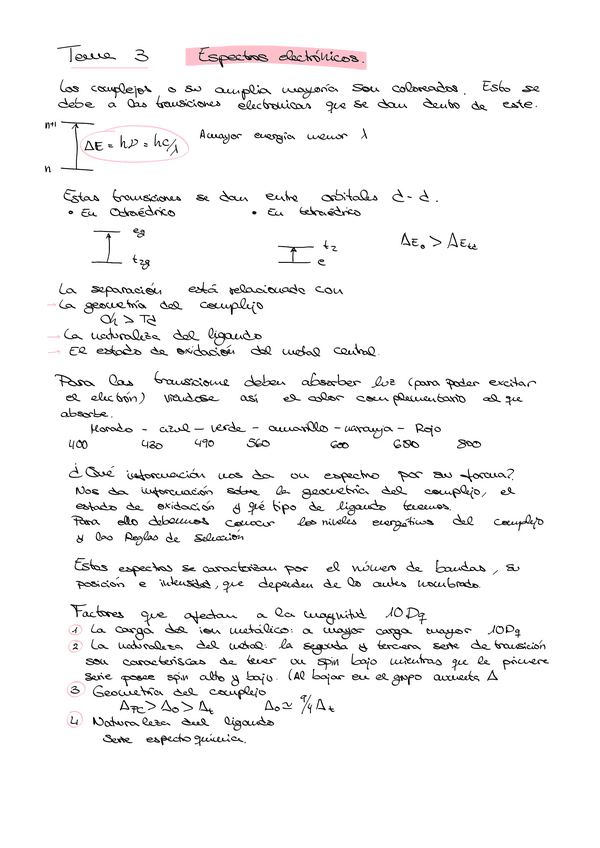 Tema 3 Espectros electrónicos.
Los complejos o su amplia mayoría son coloreados. Esto se
debe a las transiciones electronicas que se dan dentro de este.
n+1
ΔE = hν = hc/λ A mayor energía menor λ
n
Estas transiciones se dan entre orbitales d-d.
• En Octaédrico • En tetraédrico
eg
t2 ΔEo > ΔEtd
t2g e
La separación está relacionado con
→ La geometría del complejo
Oh > Td
→ La naturaleza del ligando
→ El estado de oxidación del metal central.
Para las transicione deben absorber luz (para poder excitar
el electrón) viendose así el color complementario al que
absorbe.
Morado - azul - verde - amarillo - naranja - Rojo
400 430 490 560 600 680 800
¿Qué información nos da un espectro por su forma?
Nos da información sobre la geometría del complejo, el
estado de oxidación y qué tipo de ligando tenemos.
Para ello debemos conocer los niveles energéticos del complejo
y las Reglas de Selección
Estos espectros se caracterizan por el número de bandas, su
posición e intensidad, que dependen de lo antes nombrado.
Factores que afectan a la magnitud 10Dq
1 La carga del ion metálico: a mayor carga mayor 10Dq
2 La naturaleza del metal: la segunda y tercera serie de transición
son características de tener un spin bajo mientras que la primera
serie posee spin alto y bajo. (Al bajar en el grupo aumenta Δ
3 Geometría del complejo
ΔPC > Δo > Δt Δo ≃ 9/4 Δt
4 Naturaleza del ligando
Serie espectoquímica.